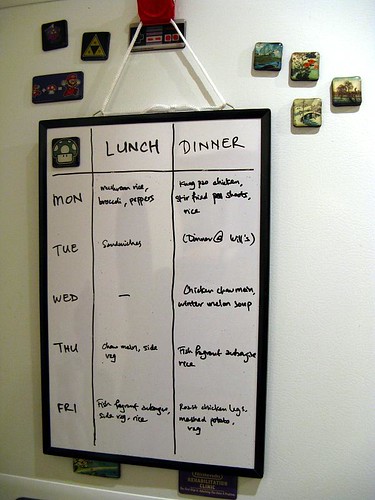 LUNCH DINNER
MON mushroom rice, Kung pao chicken,
broccoli, peppers stir fried pea shoots,
rice
TUE Sandwiches (Dinner @ Will's)
WED — Chicken chow mein,
winter melon soup
THU Chow mein, side Fish fragrant aubergine
veg rice
FRI Fish fragrant aubergine, Roast chicken legs,
side veg, rice mashed potato,
veg
REHABILITATION
CLINIC